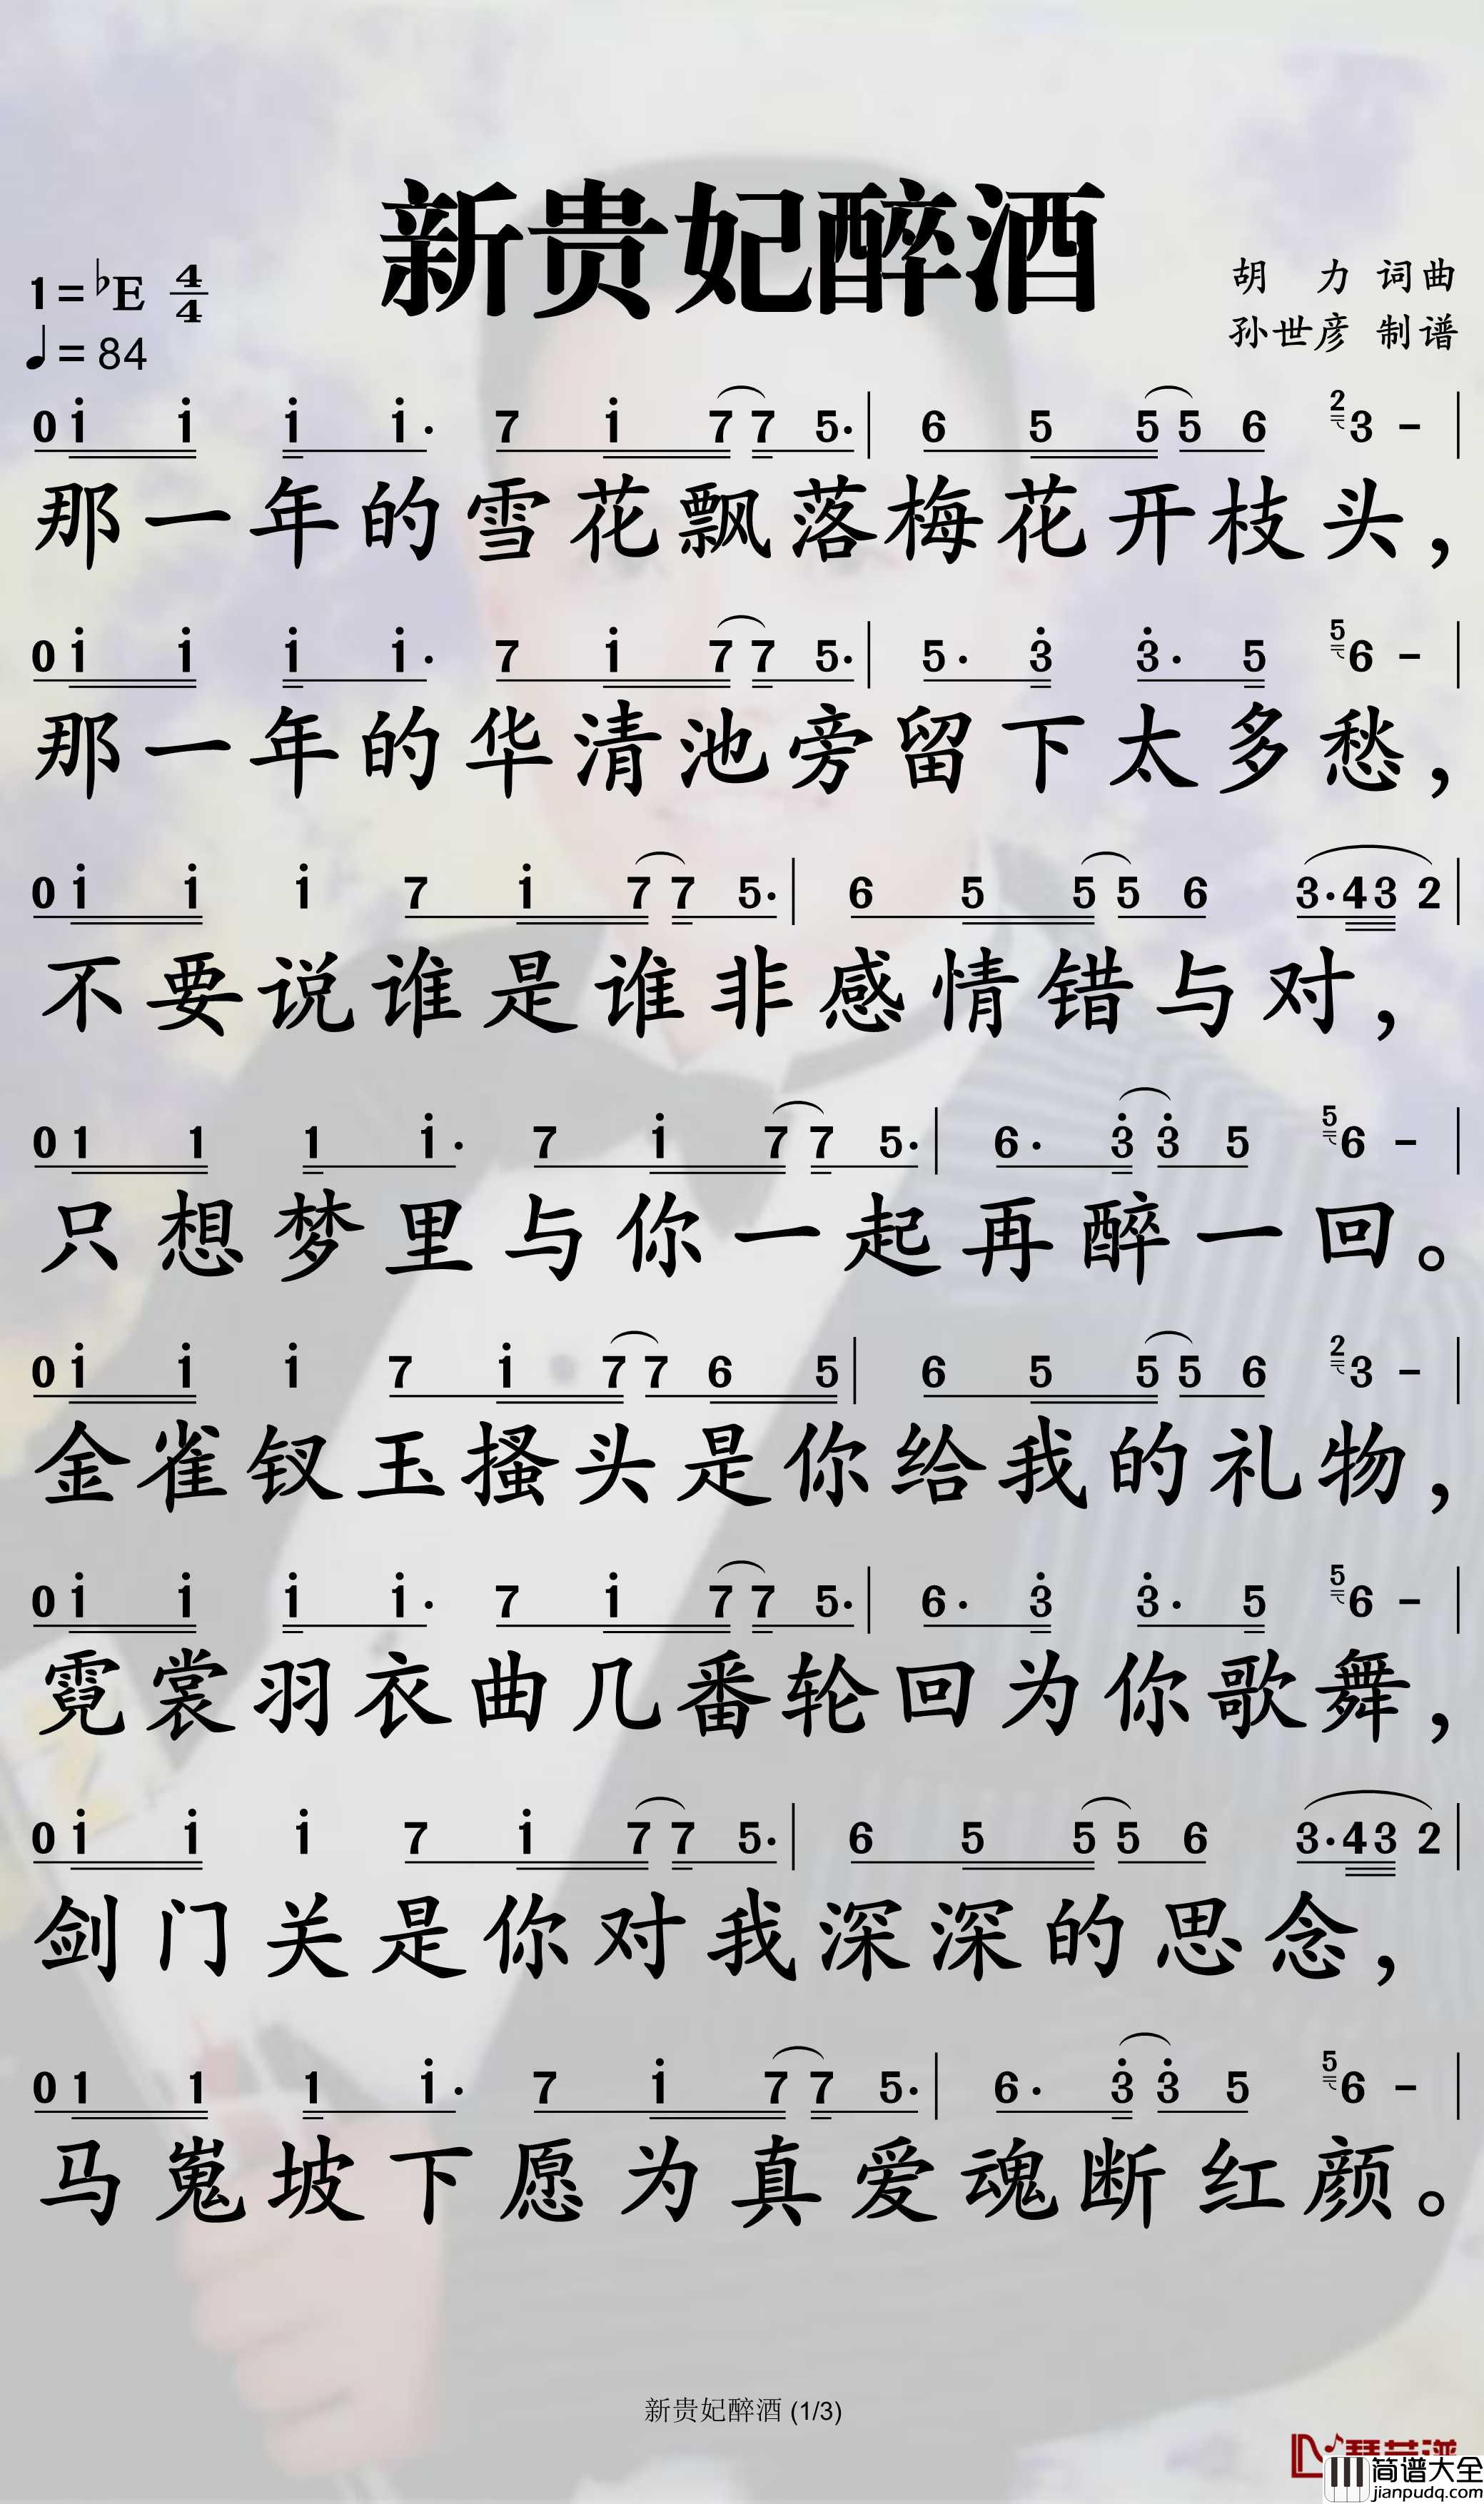 新贵妃醉酒
1=♭E 4/4
♩=84
胡 力 词曲
孙世彦 制谱
0i i i i· 7 i 7 7 5·| 6 5 5 5 6 ²3 - |
那一年的雪花飘落梅花开枝头，
0i i i i· 7 i 7 7 5·| 5· 3̇ 3̇· 5 ⁵6 - |
那一年的华清池旁留下太多愁，
0i i i 7 i 7 7 5·| 6 5 5 5 6 3·43 2 |
不要说谁是谁非感情错与对，
01 1 1 i· 7 i 7 7 5·| 6· 3̇ 3̇ 5 ⁵6 - |
只想梦里与你一起再醉一回。
0i i i 7 i 7 7 6 5 | 6 5 5 5 6 ²3 - |
金雀钗玉搔头是你给我的礼物，
0i i i i· 7 i 7 7 5·| 6· 3̇ 3̇· 5 ⁵6 - |
霓裳羽衣曲几番轮回为你歌舞，
0i i i 7 i 7 7 5·| 6 5 5 5 6 3·43 2 |
剑门关是你对我深深的思念，
01 1 1 i· 7 i 7 7 5·| 6· 3̇ 3̇ 5 ⁵6 - |
马嵬坡下愿为真爱魂断红颜。
新贵妃醉酒 (1/3)
简谱大全
jianpudq.com